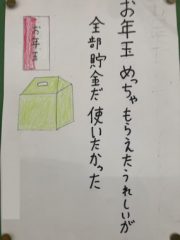 お年玉 めっちゃもらえたうれしいが
全部貯金だ 使いたかった
お年玉